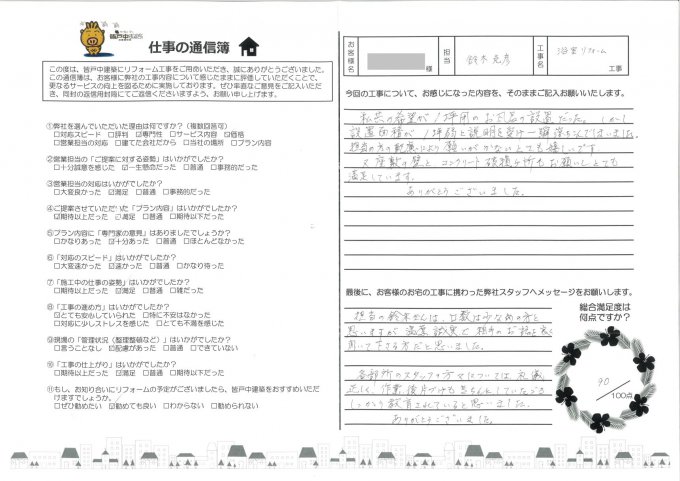 皆戸中建築
仕事の通信簿
この度は、皆戸中建築にリフォーム工事をご用命いただき、誠にありがとうございました。
この通信簿は、お客様に弊社の工事内容について感じたままに評価していただくことで、
更なるサービスの向上を図るために実施しております。ぜひ率直なご意見をご記入いただ
き、同封の返信用封筒にてご返信くださいますよう、お願い申し上げます。
①弊社を選んでいただいた理由は何ですか?(複数回答可)
□対応スピード □評判 □専門性 □サービス内容 ☑価格
□営業担当の対応 □建てた会社だから □当社の場所 □プラン内容
②営業担当の「ご提案に対する姿勢」はいかがでしたか?
□十分誠意を感じた ☑一生懸命だった □普通 □事務的だった
③営業担当の対応はいかがでしたか?
□大変良かった ☑満足 □普通 □事務的だった
④ご提案させていただいた「プラン内容」はいかがでしたか?
☑期待以上だった ☑満足 □普通 □期待以下だった
⑤プラン内容に「専門家の意見」はありましたでしょうか?
□かなりあった ☑十分あった □普通 □ほとんどなかった
⑥「対応のスピード」はいかがでしたか?
□大変速かった ☑速かった □普通 □かなり待った
⑦「施工中の仕事の姿勢」はいかがでしたか?
□期待以上だった ☑満足 □普通 □雑だった
⑧「工事の進め方」はいかがでしたか?
☑とても安心していられた □特に不安はなかった
□対応に少しストレスを感じた □とても不満を感じた
⑨現場の「管理状況(整理整頓など)」はいかがでしたか?
□言うことなし ☑配慮があった □普通 □できていない
⑩「工事の仕上がり」はいかがでしたか?
□期待以上だった ☑満足 □普通 □期待以下だった
⑪もし、お知り合いにリフォームの予定がございましたら、皆戸中建築をおすすめいただ
けますでしょうか。
□ぜひ勧めたい ☑勧めても良い □わからない □勧められない
お客様名
様
担当
鈴木 克彦
工事名
浴室リフォーム
工事
今回の工事について、お感じになった内容を、そのままご記入お願いいたします。
私共の希望が1坪用のお風呂の設置だった。しかし
設置面積が1坪弱と説明を受け一瞬落ちこんでしまいました。
担当の方の配慮により願いがかない とても嬉しいです
又座敷の壁と、コンクリート破損ヶ所もお願いしとても
満足しています。
ありがとうございました。
最後に、お客様のお宅の工事に携わった弊社スタッフへメッセージをお願いします。
担当の鈴木さんは、口数は少なめの方と
思いますが誠実と相手のお話を良く
聞いて下さる方だと思いました。
各部所のスタッフの方々については礼儀
正しく、作業後片づけもきちんとしていただき
しっかり教育されていると思いました。
ありがとうございました。
総合満足度は
何点ですか?
90
/100点